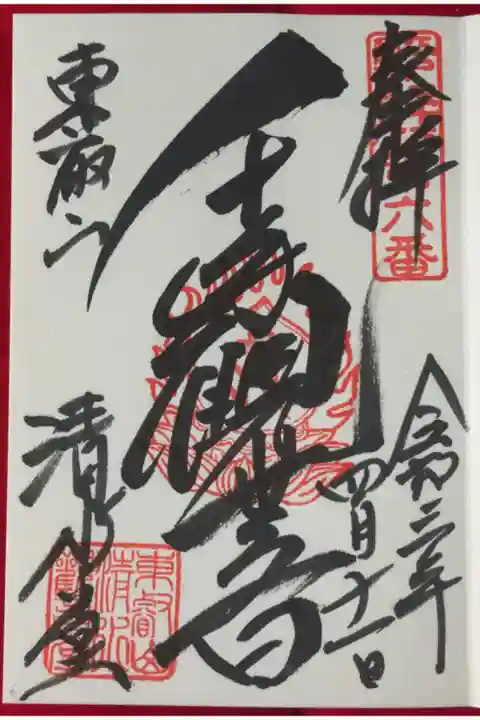 奉拝
六番
令和三年
四月十一日
千手觀世音
東叡山
清水堂
東叡山
清水